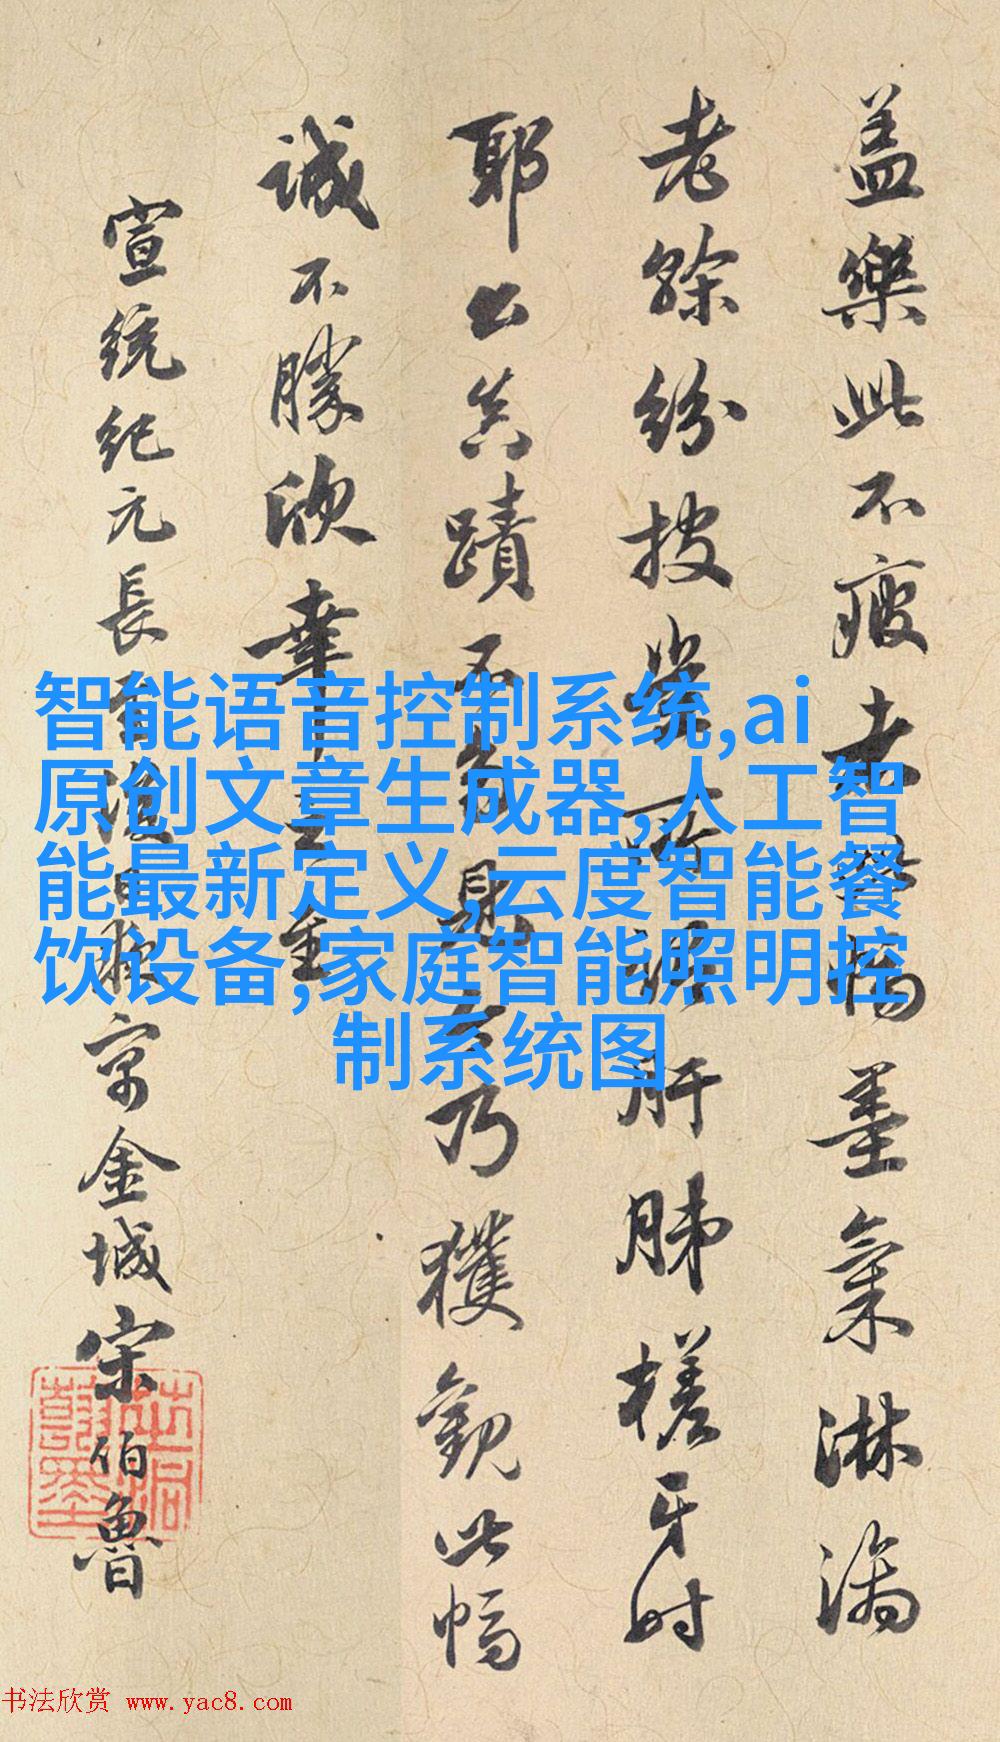 盖樂此不疲墨氣淋漓
老餘紛披豈所謂肝肺槎牙時
耶公真蹟不多見今乃獲觀此幅
誠不勝欣幸之至
宣統紀元長至後日寓金城宋伯魯
智能语音控制系统,ai
原创文章生成器,人工智
能最新定义,云度智能餐
饮设备,家庭智能照明控
制系统图
书法欣赏 www.yac8.com